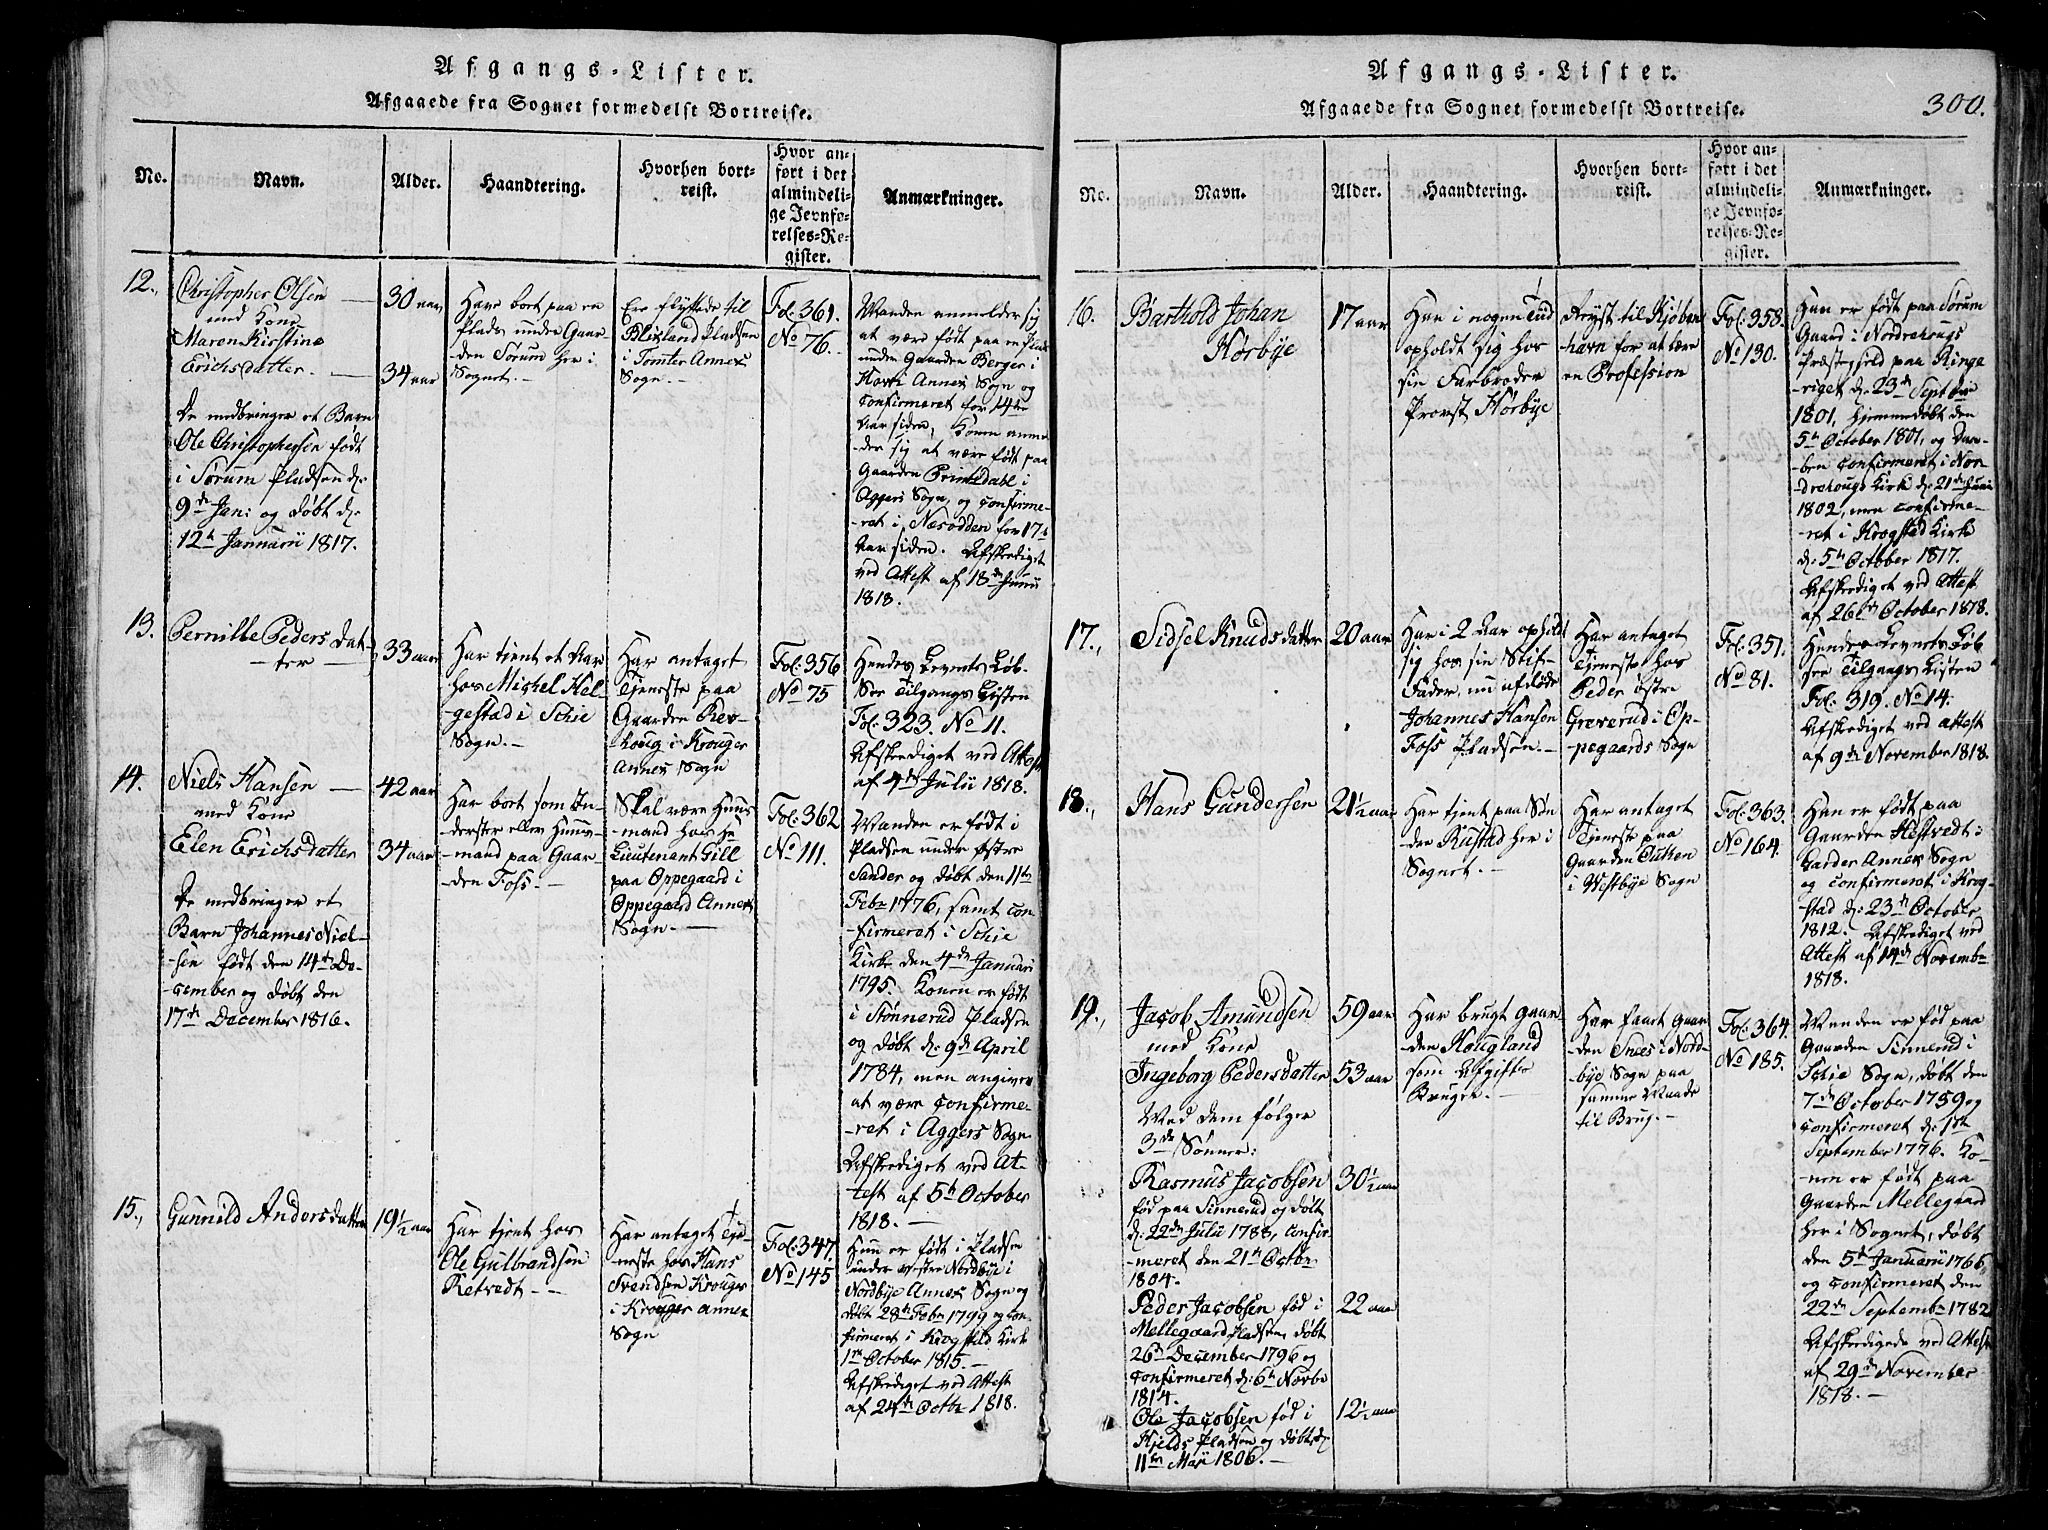 Afgangs-Lister.
Afgaaede fra Sognet formedelst Bortreise.
No.
Navn.
Alder.
Haandtering.
Hvorhen bort-
reist.
Hvor an-
ført i det
almindeli-
ge Jevnfø-
relses-Re-
gister.
Anmærkninger.
12.,
Christopher Olsen
med Kone
Maren Kirstine
Erichsdatter. —
De medbringer et Barn
Ole Christophersen født
i Sørum Pladsen d:
9de Jan: og døbt d:
12te Januarii 1817.
30 aar
34 aar
Have boet paa en
Plads under Gaar-
den Sørum her i
Sognet. —
Ere flyttede til
Pladsen
i Tomter Annex
Sogn. —
Fol. 361.
No 76.
Manden anmelder sig
at være født paa en Plads
under Gaarden Berger i
Annex Sogn og
confirmeret for 14ten
Aar siden; Konen anmel-
der sig at være født paa
Gaarden i
Aggers Sogn, og confirme-
-ret i Næsodden for 17ten
Aar siden. Afskediget
ved Attest af 18de Junii
1818.
13.
Pernille Peders dat-
— ter —
33 aar
Har tjent et Aar
hos Michel Hel-
-gestad i Schie
Sogn. —
Har antaget
Tjeneste paa
Gaarden Rev-
houg i Krouger
Annex Sogn
Fol: 356
No 75
Hendes Levnets Løb.
See Tilgangs Listen
Fol: 323. No 11.
Afskediget ved Attest
af 4de Julii 1818.
14.
Niels Hansen —
med Kone
Elen Erichsdatter
De medbringer et
Barn Johannes Niel-
-sen født den 14de De-
-cember og døbt den
17de December 1816.
42 aar
34 aar
Har boet som In-
derster eller Huus-
-mand paa Gaar-
-den Foss. —
Skal være Huus-
-mand hos Hr.
Lieutenant Gill
paa Oppegaard i
Oppegaard Annex
Sogn. —
Fol: 362
No 111.
Manden er født i
Pladsen under Østre
Sander og døbt den 11te
Febr 1776, samt con-
-firmeret i Schie
Kirke den 4de Januari
1795. Konen er født
i Stønnerud Pladsen
og døbt d: 9de April
1784, men angiver
at være confirme-
-ret i Aggers Sogn
Afskediget ved At-
-test af 5te October
1818. —
15.,
Gunnild Andersdatter
19½ aar
Har tjent hos
Ole Gulbrandsen
Retvedt — —
Har antaget Tje-
neste hos Hans
Svendsen Krouger
i Krouger Annex
Sogn
Fol: 347,
No 145
Hun er født i Pladsen
under vestre Nordbye i
Nordbye Annex Sogn og
døbt 28de Febr 1799 og con-
firmeret i Krogstad Kirke
1ste October 1815. —
Afskediget ved Attest
af 24de Octbr 1818.
Afgangs-Lister.
Afgaaede fra Sognet formedelst Bortreise.
300.
No.
Navn.
Alder.
Haandtering.
Hvorhen bort-
reist.
Hvor an-
ført i det
almindeli-
ge Jevnfø-
relses-Re-
gister.
Anmærkninger.
16.
Barthold Johan
Hørbye
17 aar
Har i nogen Tid
opholdt sig hos
sin Farbroder
Provst Hørbye
Reyst til Kjøben
havn for at lære
en Profession
Fol: 358.
No 130.
Han er født paa Sørum
Gaard i Nordrehougs
Præstegjeld paa Ringe
-riget d: 23de Septbr
1801, hjemmedøbt den
5te October 1801, og Daa-
-ben confirmeret i Nor-
-drehougs Kirke d: 21de Junii
1802, men confirme-
-ret i Krogstad Kirke
d: 5te October 1817.
Afskediget ved Attest
af 26de October 1818.
17.,
Sidsel Knudsdatter
20 aar
Har i 2 Aar opholdt
sig hos sin Stif-
Fader, nu afdøde
Johannes Hansen
Foss Pladsen. —
Har antaget
Tjeneste hos
Peder østre
Greverud i Op-
-pegaards Sogn
Fol: 351.
No 81.
Hendes Levnets Løb
see Tilgangs Listen
Fol: 319. No 14.
Afskediget ved Attest
af 9de November 1818.
18.,
Hans Gundersen
21½ aar
Har tjent paa Søn
den Rustad her i
Sognet. —
Har antaget
Tjeneste paa
Gaarden Tutten
i Westbye Sogn
Fol: 363.
No 164.
Han er født paa
Gaarden Hestvedt i
Garder Annex Sogn
og confirmeret i Krog-
stad d: 23de October
1812. Afskediget ved
Attest af 14de Novembr
1818.
19.,
Jacob Amundsen
med Kone
Ingeborg Pedersdatter
Med dem følger
3de Sønner:
Rasmus Jacobsen
fød paa Sinnerud og døbt
d: 22de Julii 1788, confir-
-meret den 21de Octbr
1804.
Peder Jacobsen fød i
Mellegaard Pladsen, døbt
26de December 1796 og
confirmeret d: 6te Novbr
1814.
Ole Jacobsen fød i
Hjelds Pladsen og døbt d:
11te Mai 1806. —
59 aar
53 aar
30½ aar
22 aar
12½ aar
Har brugt Gaar-
-den Hougland
som Afgifts
Bruger. —
Har faaet Gaar-
-den Snees i Nord-
bye Sogn paa
samme Maade
til Brug. —
Fol: 364.
No 185.
Manden er fød paa
Gaarden Sinnerud i
Schie Sogn, døbt den
7de October 1759 og
confirmeret d: 1ste
September 1776. Ko-
-nen er født paa
Gaarden Mellegaard
her i Sognet, døbt
den 5te Januarii 1766,
og confirmeret den
22de Septembr 1782
Afskedigede ved Attest
af 29de November
1818. —